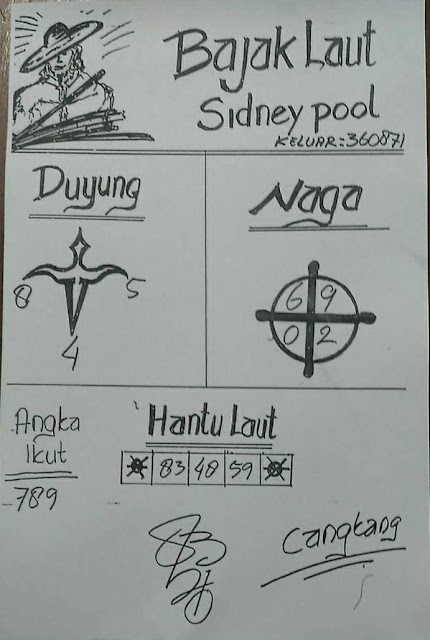 Bajak Laut
Sidney pool
KELUAR = 360871
Duyung
8 5
4
Naga
6 9
0 2
Angka
Ikut
789
Hantu Laut
83 48 59
Cangkang